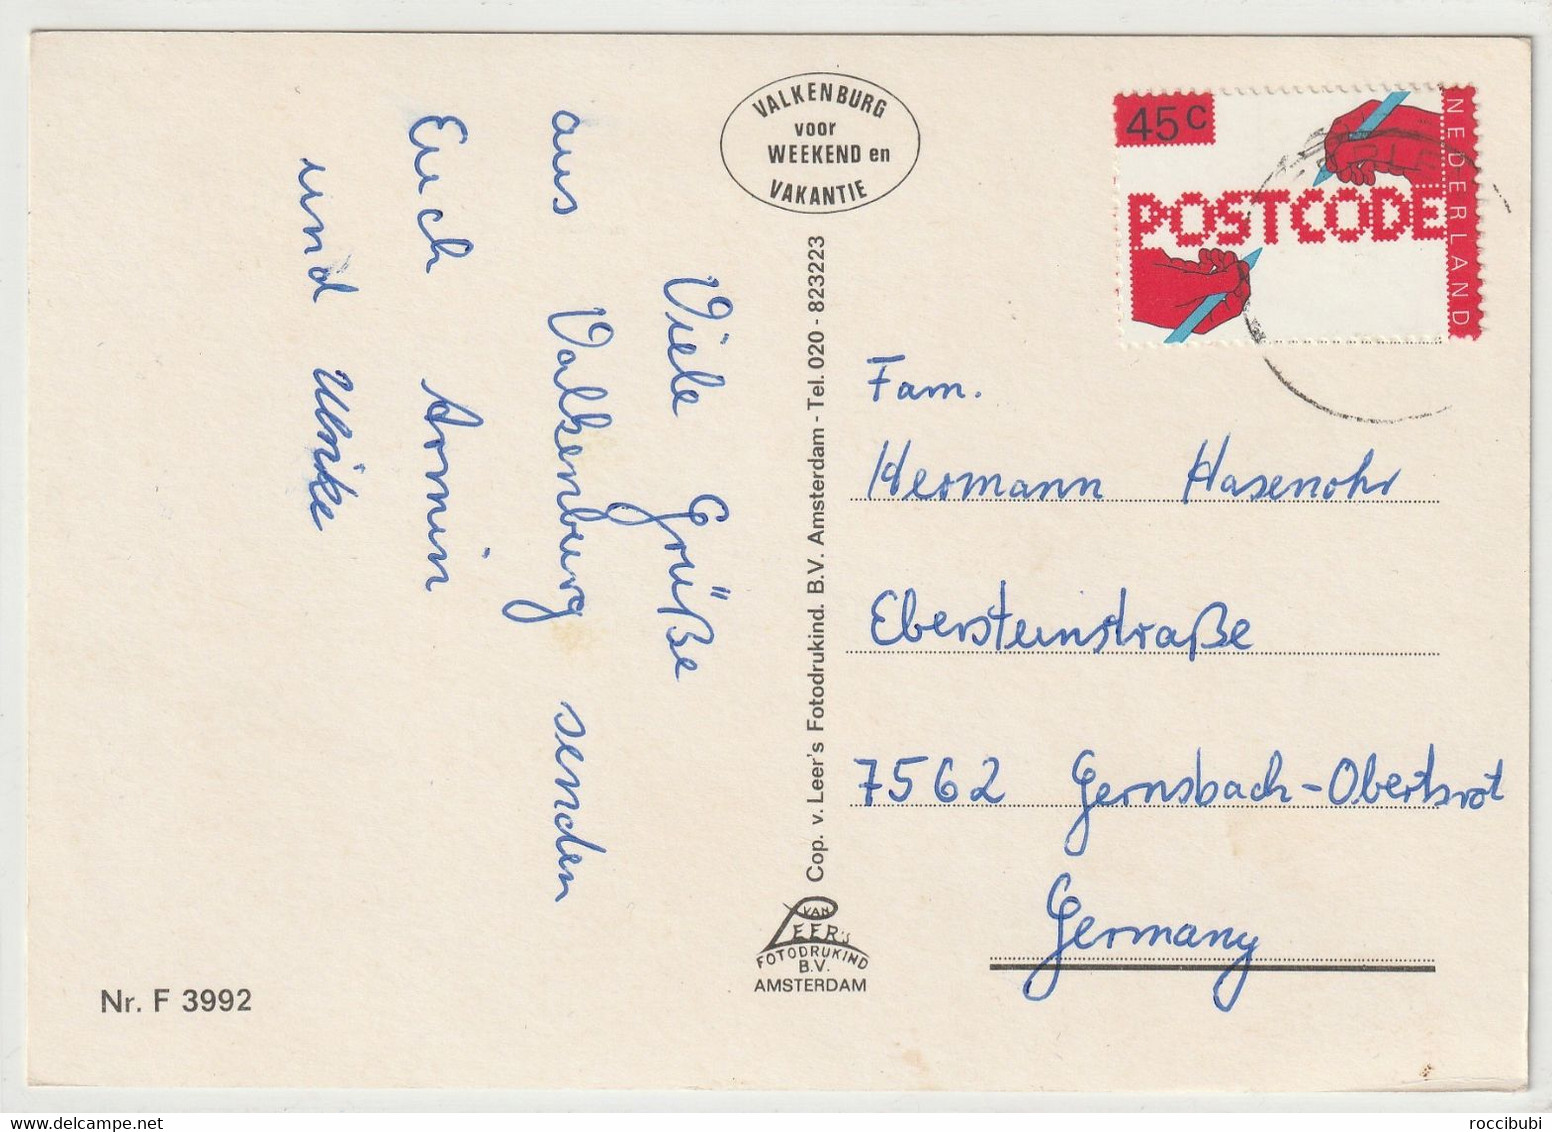 VALKENBURG
voor
WEEKEND en
VAKANTIE
45c
POSTCODE
NEDERLAND
Viele Grüße
aus Valkenburg senden
Euch Armin
und Ulrike
Cop. v. Leer's Fotodrukind. B.V. Amsterdam - Tel. 020 - 823223
Fam.
Hermann Hasenohr
Ebersteinstraße
7562 Gernsbach-Obertsrot
Germany
VAN
LEER's
FOTODRUKIND
B.V.
AMSTERDAM
Nr. F 3992
roccibubi